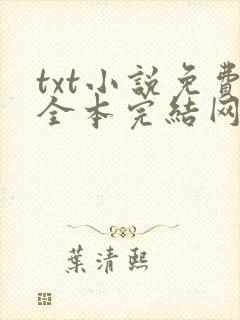 txt小說免費
全本完結网
葉清熙